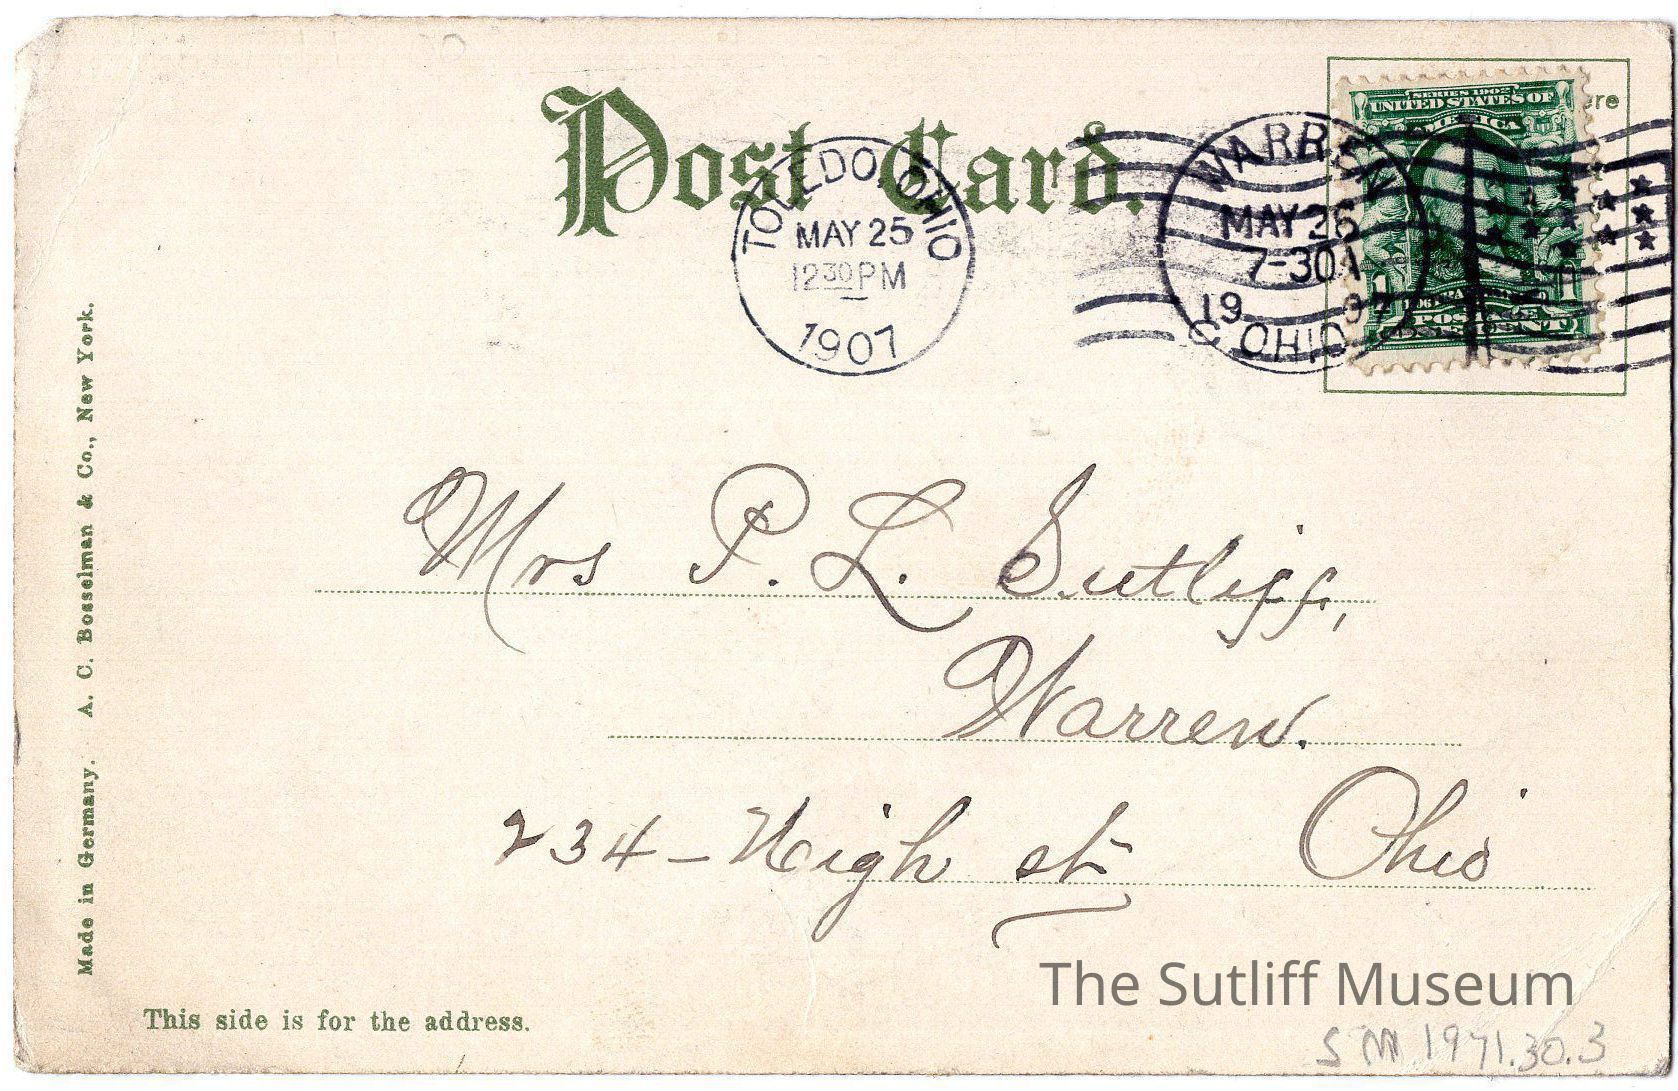 Post Card.
TOLEDO, OHIO
MAY 25
12 30 PM
1907
WARREN
MAY 26
7-30A
19 07
OHIO
SERIES 1902
UNITED STATES OF
AMERICA
POSTAGE
ere
Mrs P. L. Sutliff,
Warren.
234 - High st Ohio
Made in Germany. A. C. Bosselman & Co., New York.
This side is for the address.
The Sutliff Museum
SM 1971.30.3